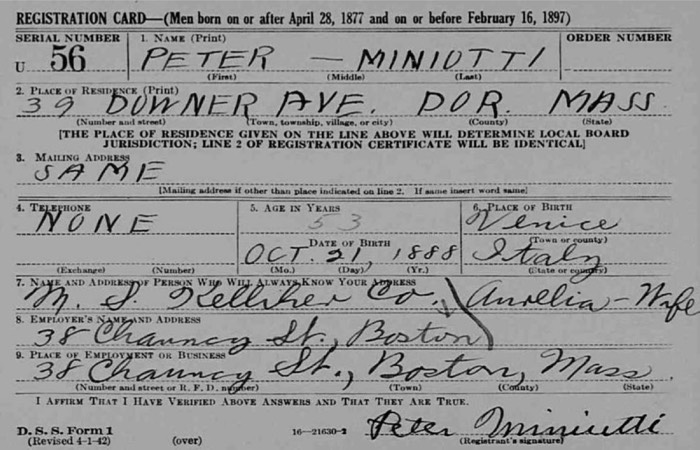 REGISTRATION CARD—(Men born on or after April 28, 1877 and on or before February 16, 1897)
SERIAL NUMBER 1. NAME (Print) ORDER NUMBER
U 56 PETER — MINIOTTI
(First) (Middle) (Last)
2. PLACE OF RESIDENCE (Print)
39 DOWNER AVE. DOR. MASS
(Number and street) (Town, township, village, or city) (County) (State)
[THE PLACE OF RESIDENCE GIVEN ON THE LINE ABOVE WILL DETERMINE LOCAL BOARD
JURISDICTION; LINE 2 OF REGISTRATION CERTIFICATE WILL BE IDENTICAL]
3. MAILING ADDRESS
SAME
[Mailing address if other than place indicated on line 2. If same insert word same]
4. TELEPHONE 5. AGE IN YEARS 6. PLACE OF BIRTH
NONE 53 Venice
(Town or county)
DATE OF BIRTH
OCT. 21, 1888 Italy
(Exchange) (Number) (Mo.) (Day) (Yr.) (State or country)
7. NAME AND ADDRESS OF PERSON WHO WILL ALWAYS KNOW YOUR ADDRESS
M. S. Kelliher Co. Aurelia - Wife
8. EMPLOYER'S NAME AND ADDRESS
38 Chauncy St., Boston
9. PLACE OF EMPLOYMENT OR BUSINESS
38 Chauncy St., Boston, Mass.
(Number and street or R. F. D. number) (Town) (County) (State)
I AFFIRM THAT I HAVE VERIFIED ABOVE ANSWERS AND THAT THEY ARE TRUE.
D. S. S. Form 1
(Revised 4-1-42) (over) 16—21630-2 Peter Miniutti
(Registrant's signature)